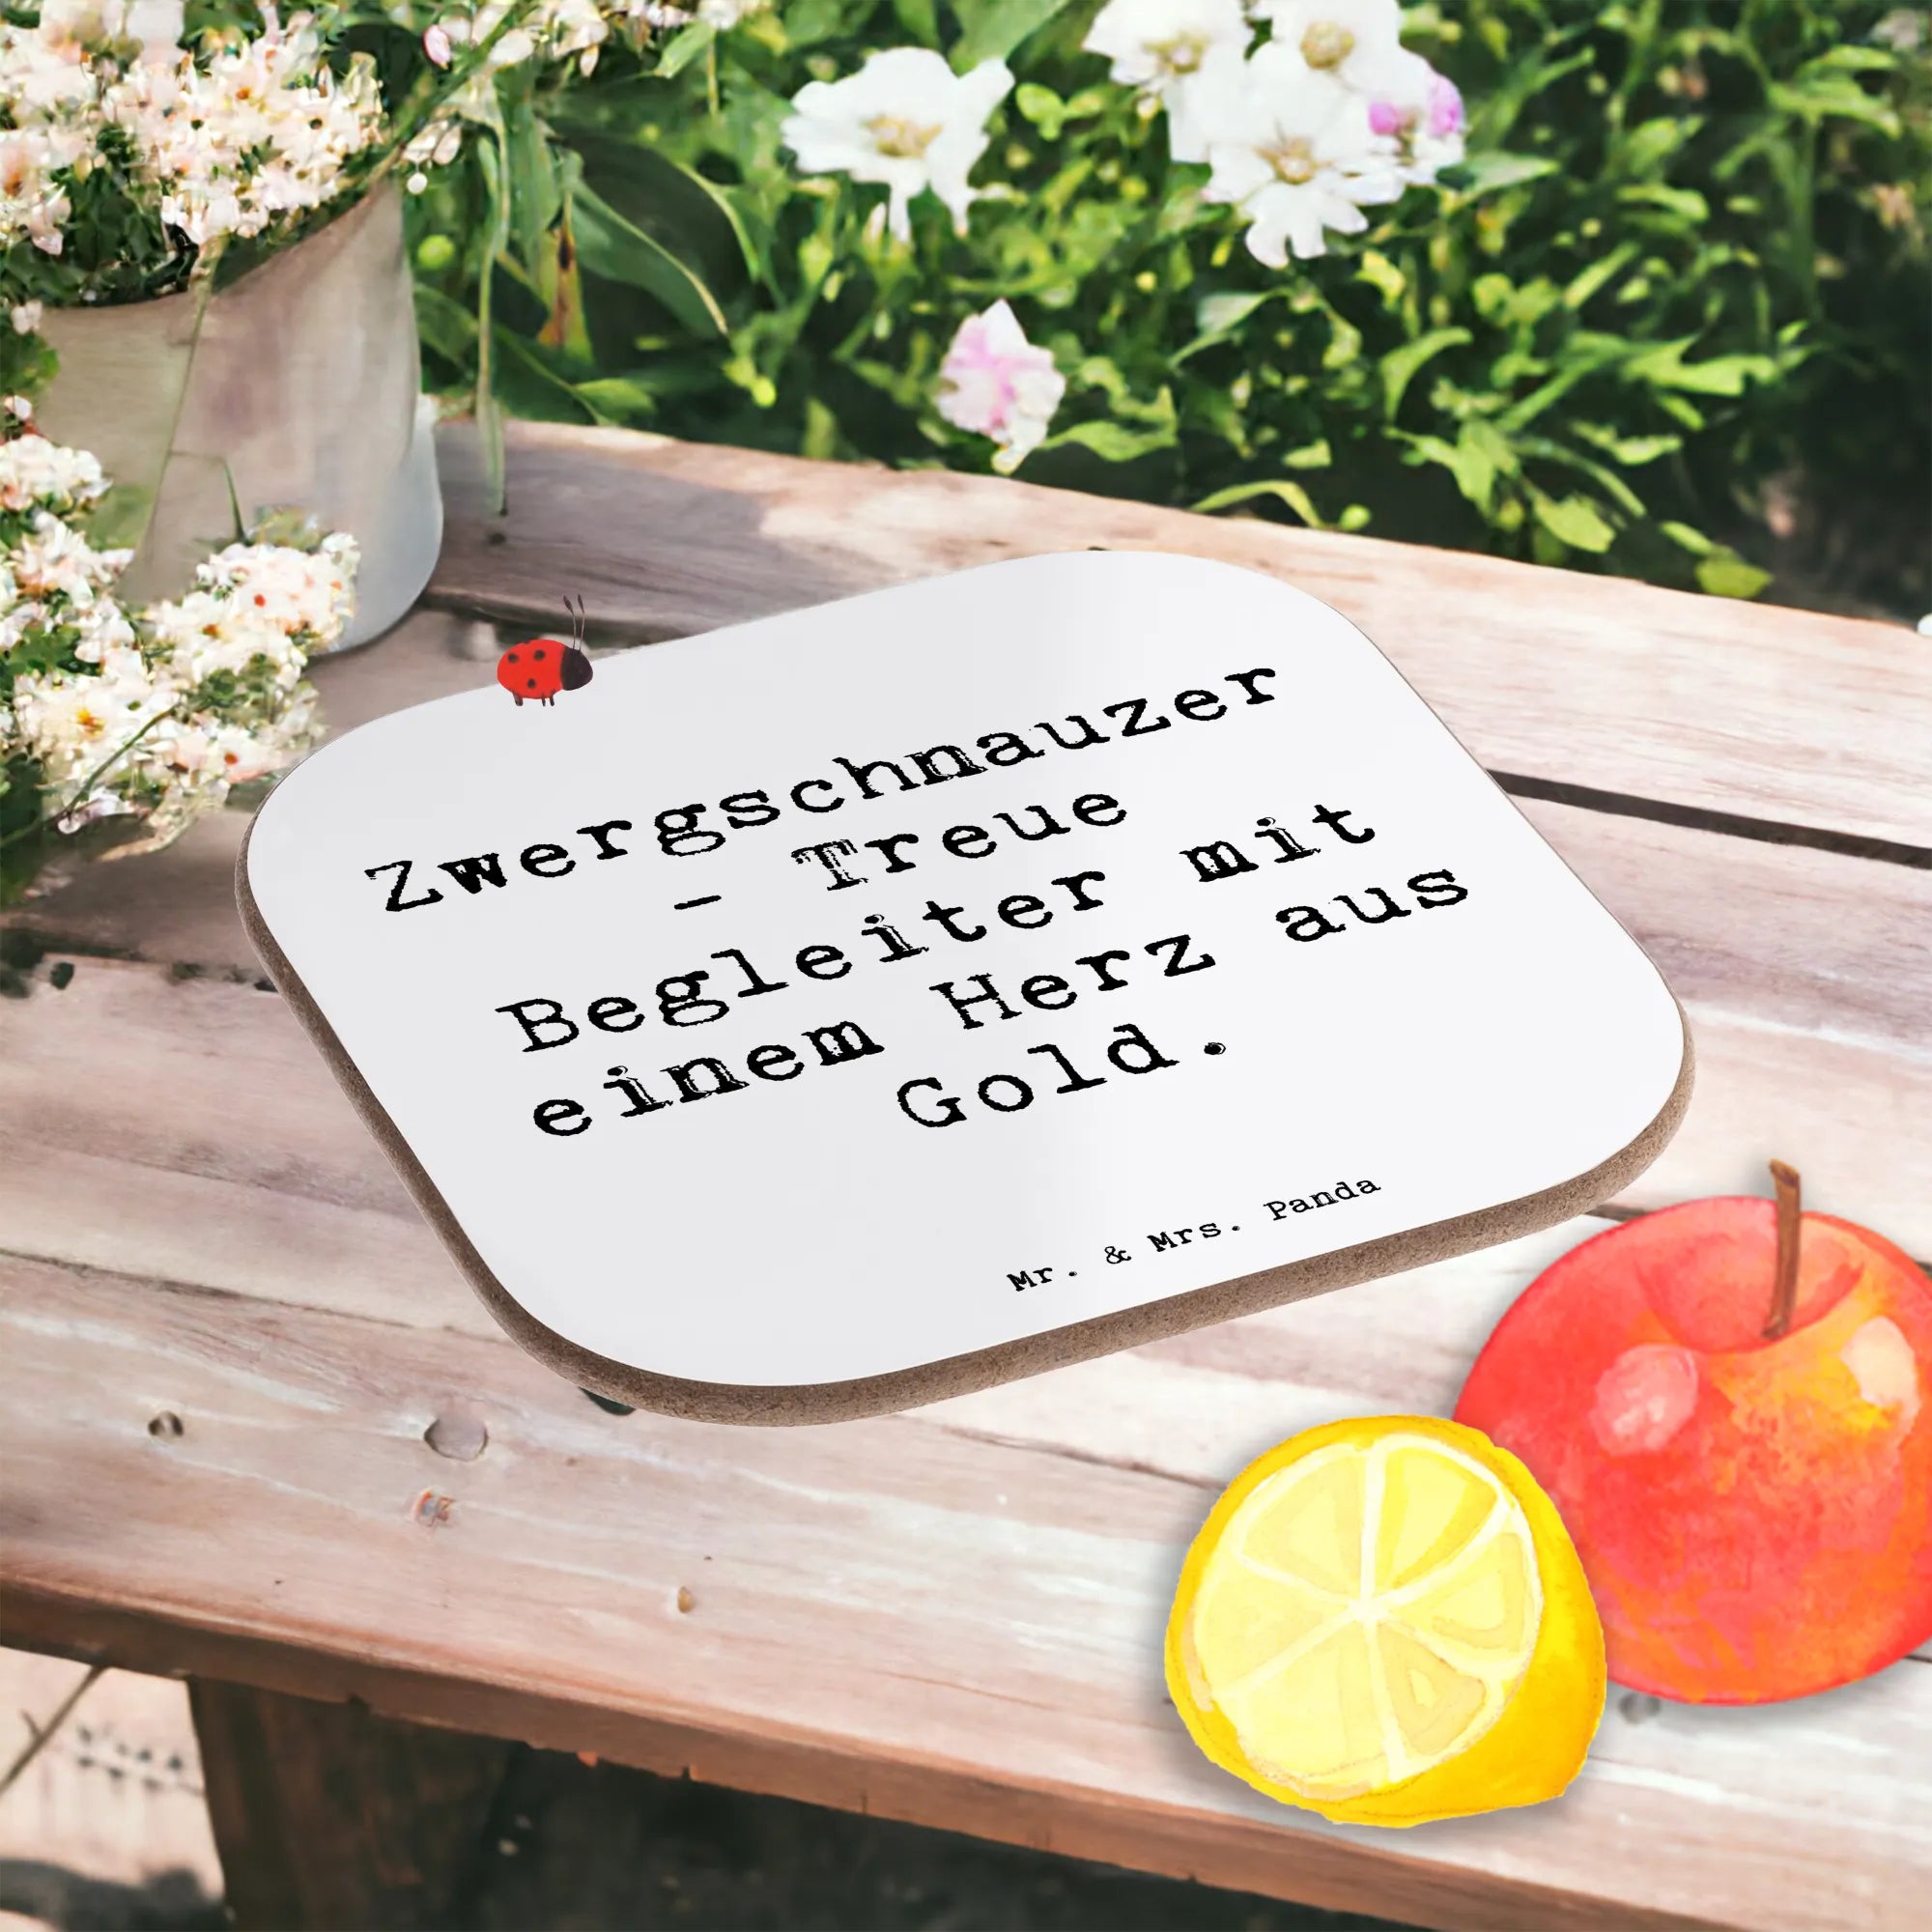 Zwergschnauzer
- Treue
Begleiter mit
einem Herz aus
Gold.
Mr. & Mrs. Panda